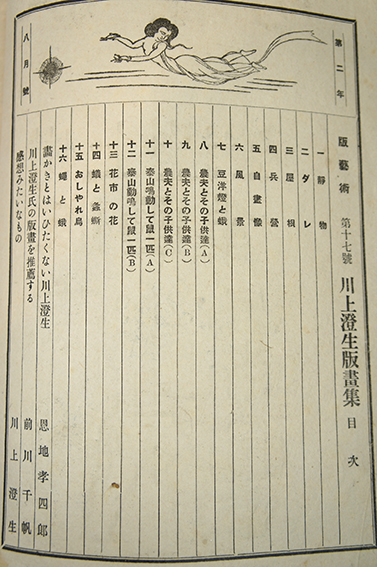 第二年
八月號
版藝術 第十七號 川上澄生版畫集 目次
一 靜物
二 ダレ
三 屋根
四 兵營
五 自畫像
六 風景
七 豆洋燈と蛾
八 農夫とその子供達(A)
九 農夫とその子供達(B)
十 農夫とその子供達(C)
十一 泰山鳴動して鼠一匹(A)
十二 泰山鳴動して鼠一匹(B)
十三 花市の花
十四 蟻と螽斯
十五 おしやれ烏
十六 蠅と蛾
畫かきとはいひたくない川上澄生 恩地孝四郎
川上澄生氏の版畫を推薦する 前川千帆
感想みたいなもの 川上澄生